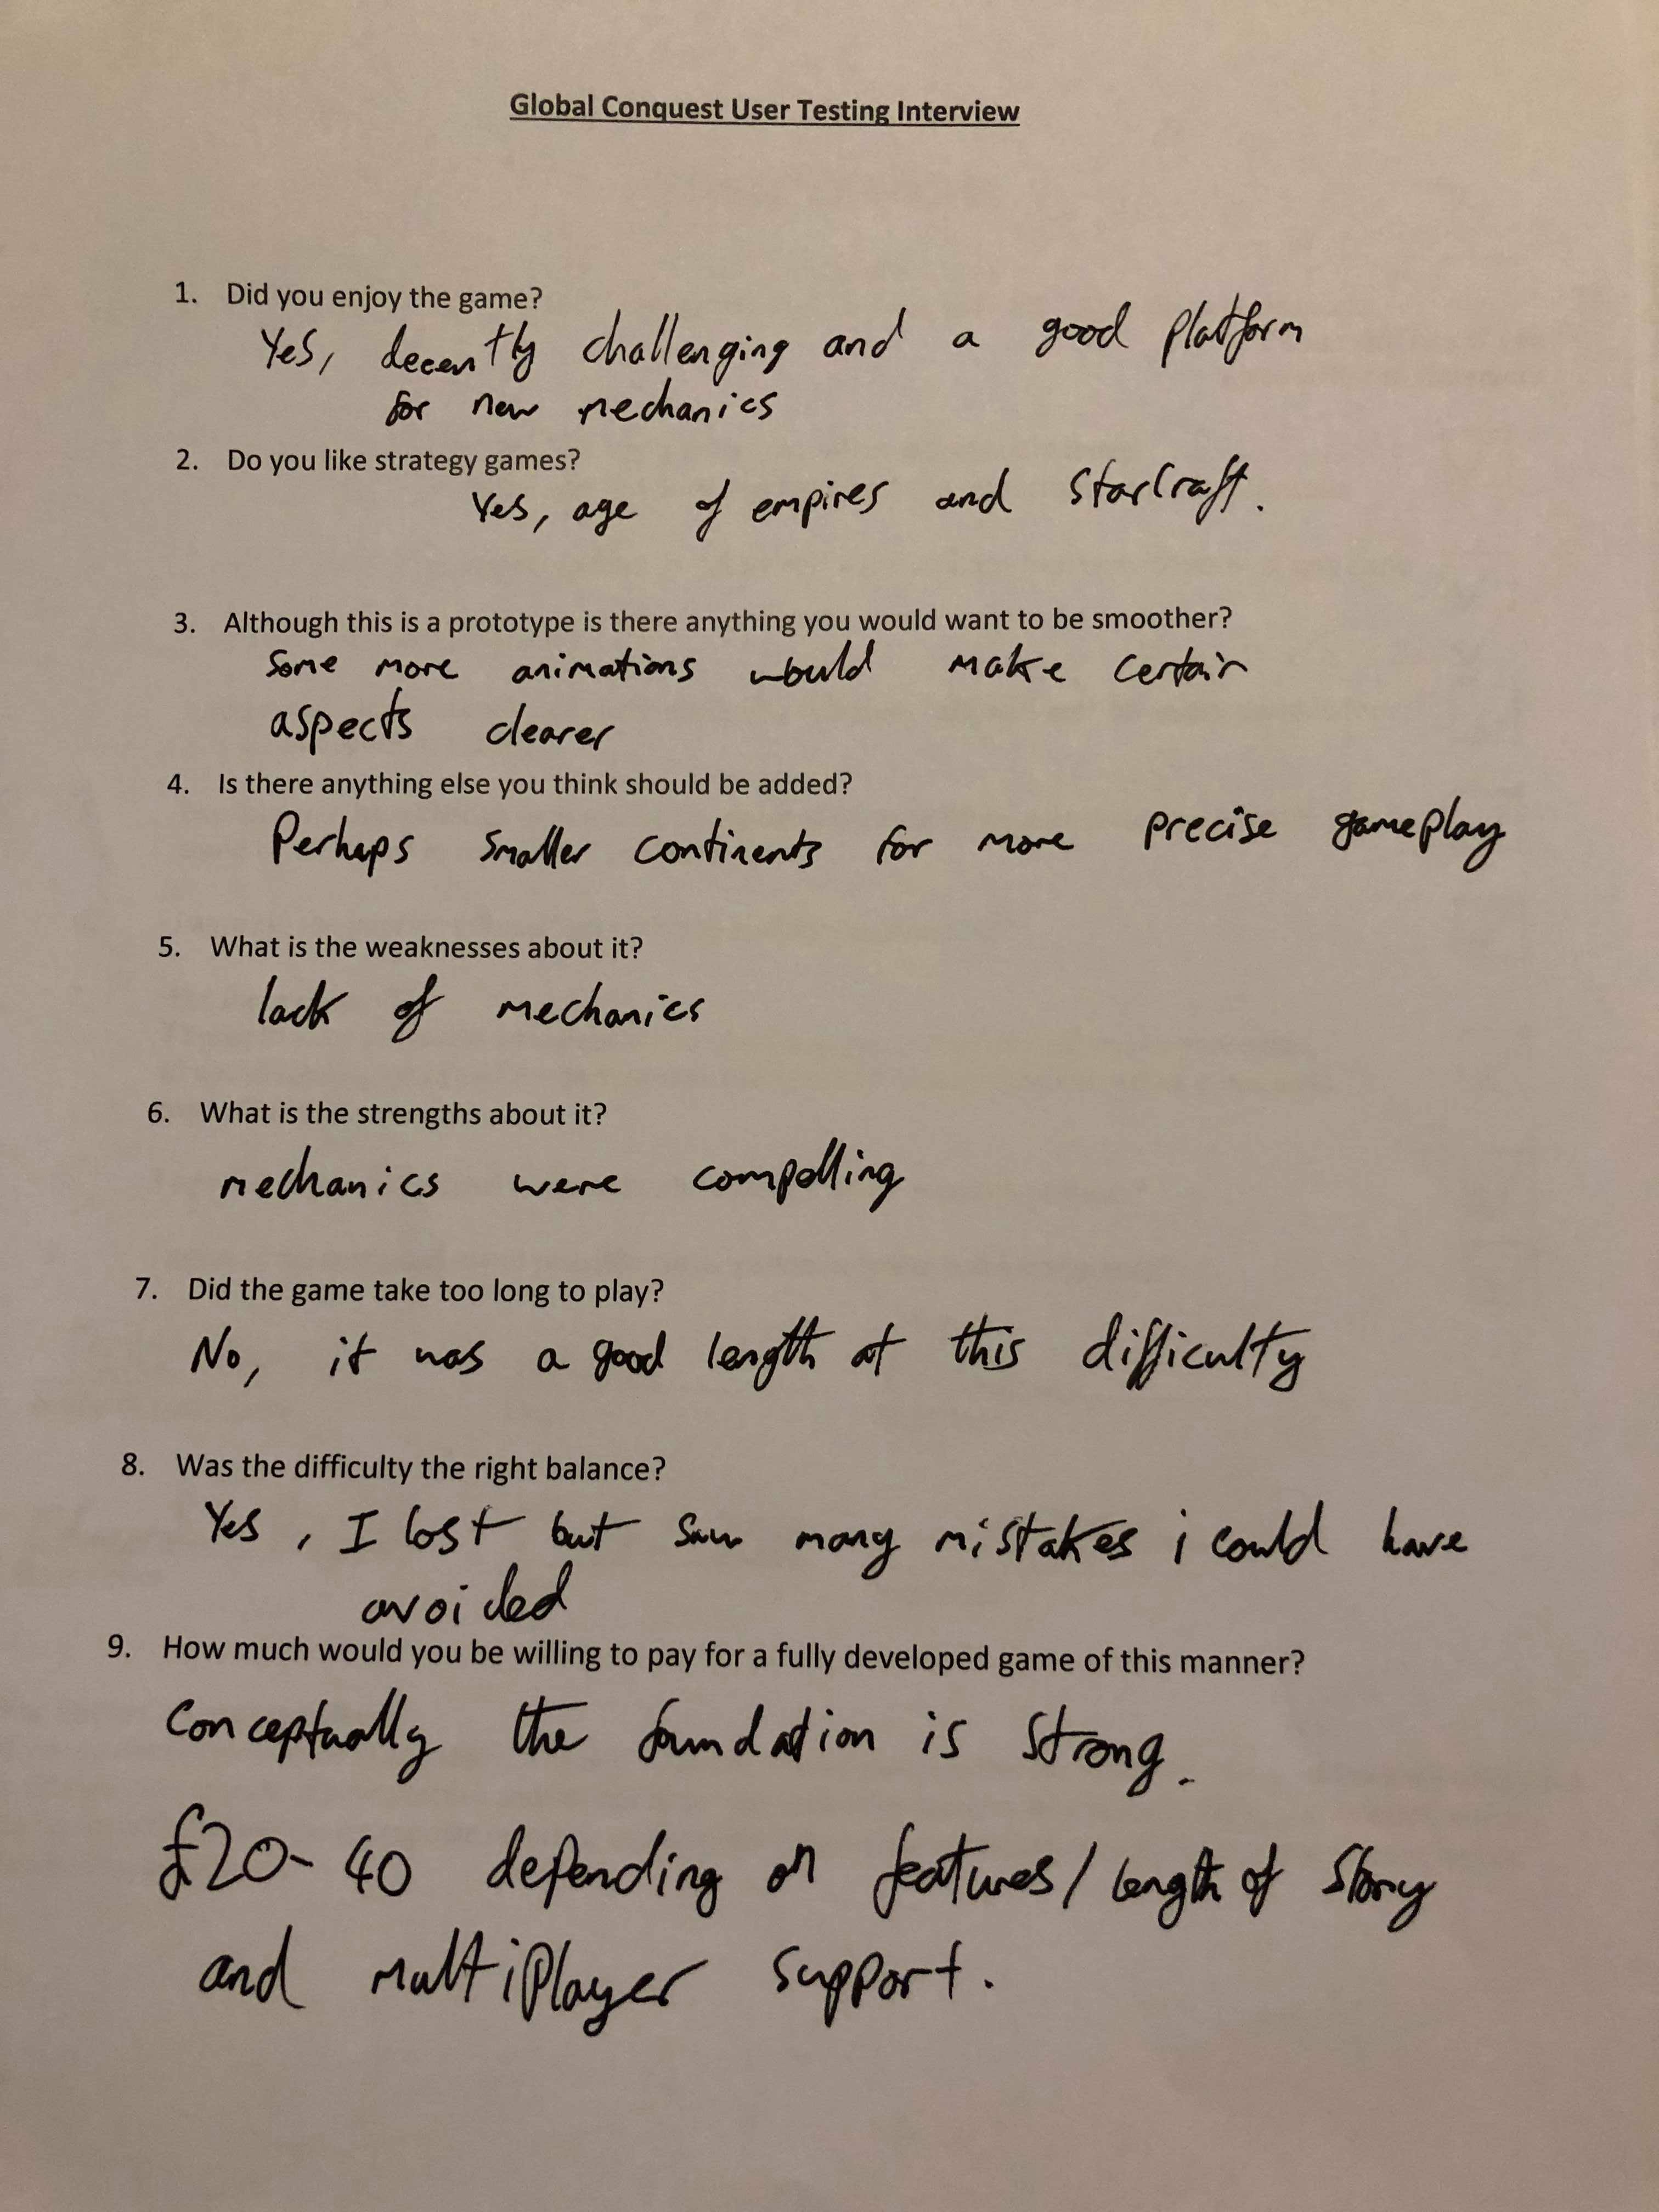 Global Conquest User Testing Interview
1. Did you enjoy the game?
Yes, decently challenging and a good platform
for new mechanics
2. Do you like strategy games?
Yes, age of empires and StarCraft.
3. Although this is a prototype is there anything you would want to be smoother?
Some more animations would make certain
aspects clearer
4. Is there anything else you think should be added?
Perhaps smaller continents for more precise gameplay
5. What is the weaknesses about it?
lack of mechanics
6. What is the strengths about it?
mechanics were compelling
7. Did the game take too long to play?
No, it was a good length at this difficulty
8. Was the difficulty the right balance?
Yes, I lost but saw many mistakes i could have
avoided
9. How much would you be willing to pay for a fully developed game of this manner?
Conceptually the foundation is strong.
£20-40 depending on features/length of story
and multiplayer support.